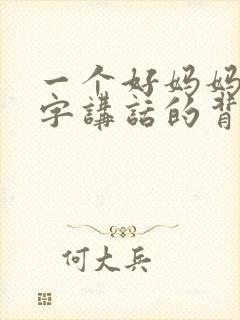 一个好妈妈
字講話的背
何大兵